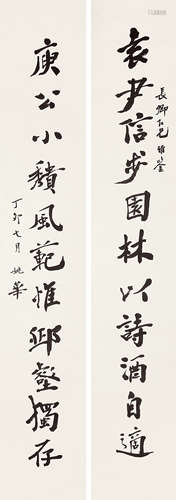 袁尹信步園林以詩酒自適
長卿仁兄雅鉴
庾公小積風範惟邱壑獨存
丁卯七月 姚華